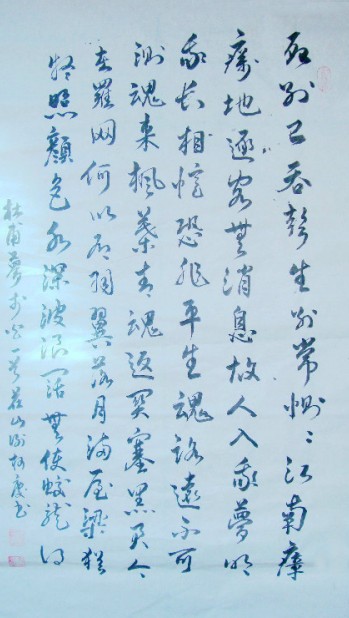 死别已吞聲生别常惻〻江南瘴
癘地逐客無消息故人入我夢明
我長相憶恐非平生魂路遠不可
測魂來楓葉青魂返關塞黑君今
在羅網何以有羽翼落月滿屋梁猶
疑照顏色水深波浪闊無使蛟龍得
杜甫夢李白一首 山 慶书